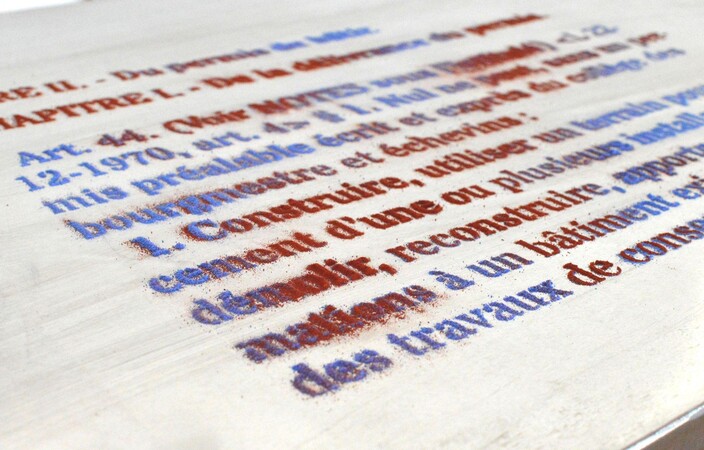 RE II. - Du permis de bâtir.
HAPITRE I. - De la délivrance du permis.
Art. 44. (Voir NOTES sous <L 22-
12-1970, art. 4> § 1. Nul ne peut, sans un per-
mis préalable écrit et exprès du collège des
bourgmestre et échevins :
1. Construire, utiliser un terrain pou
cement d'une ou plusieurs install
démolir, reconstruire, apport
mations à un bâtiment exi
des travaux de conse